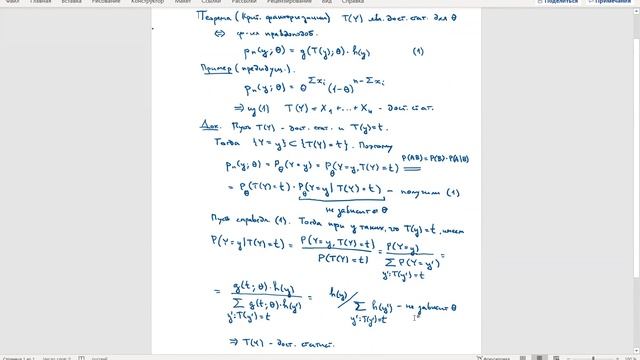 Вставка Рисование Конструктор Макет Ссылки Рассылки Рецензирование Вид Справка Поделиться Примечания
Теорема (Крит. факторизации) T(Y) явл. дост. стат. для θ
⇔ ф-ия правдоподоб.
pₙ(y; θ) = g(T(y); θ) · h(y) (1)
Пример (предыдущ.).
pₙ(y; θ) = θ^{Σxᵢ} (1-θ)^{n-Σxᵢ}
⇒ из (1) T(Y) = X₁ + ... + Xₙ - дост. стат.
Док. Пусть T(Y) - дост. стат. и T(y)=t.
Тогда {Y=y} ⊂ {T(Y)=t}. Поэтому
pₙ(y; θ) = P_θ(Y=y) = P_θ(Y=y, T(Y)=t) = P(AB)=P(B)·P(A|B)
= P_θ(T(Y)=t) · P_θ(Y=y | T(Y)=t) - получили (1)
не зависит от θ
Пусть справедл. (1). Тогда при y таких, что T(y)=t, имеем
P(Y=y|T(Y)=t) = P(Y=y, T(Y)=t) / P(T(Y)=t) = P(Y=y) / Σ_{y':T(y')=t} P(Y=y')
= g(t; θ)·h(y) / Σ_{y':T(y')=t} g(t; θ)·h(y') = h(y) / Σ_{y':T(y')=t} h(y') - не зависит θ
⇒ T(Y) - дост. статист.